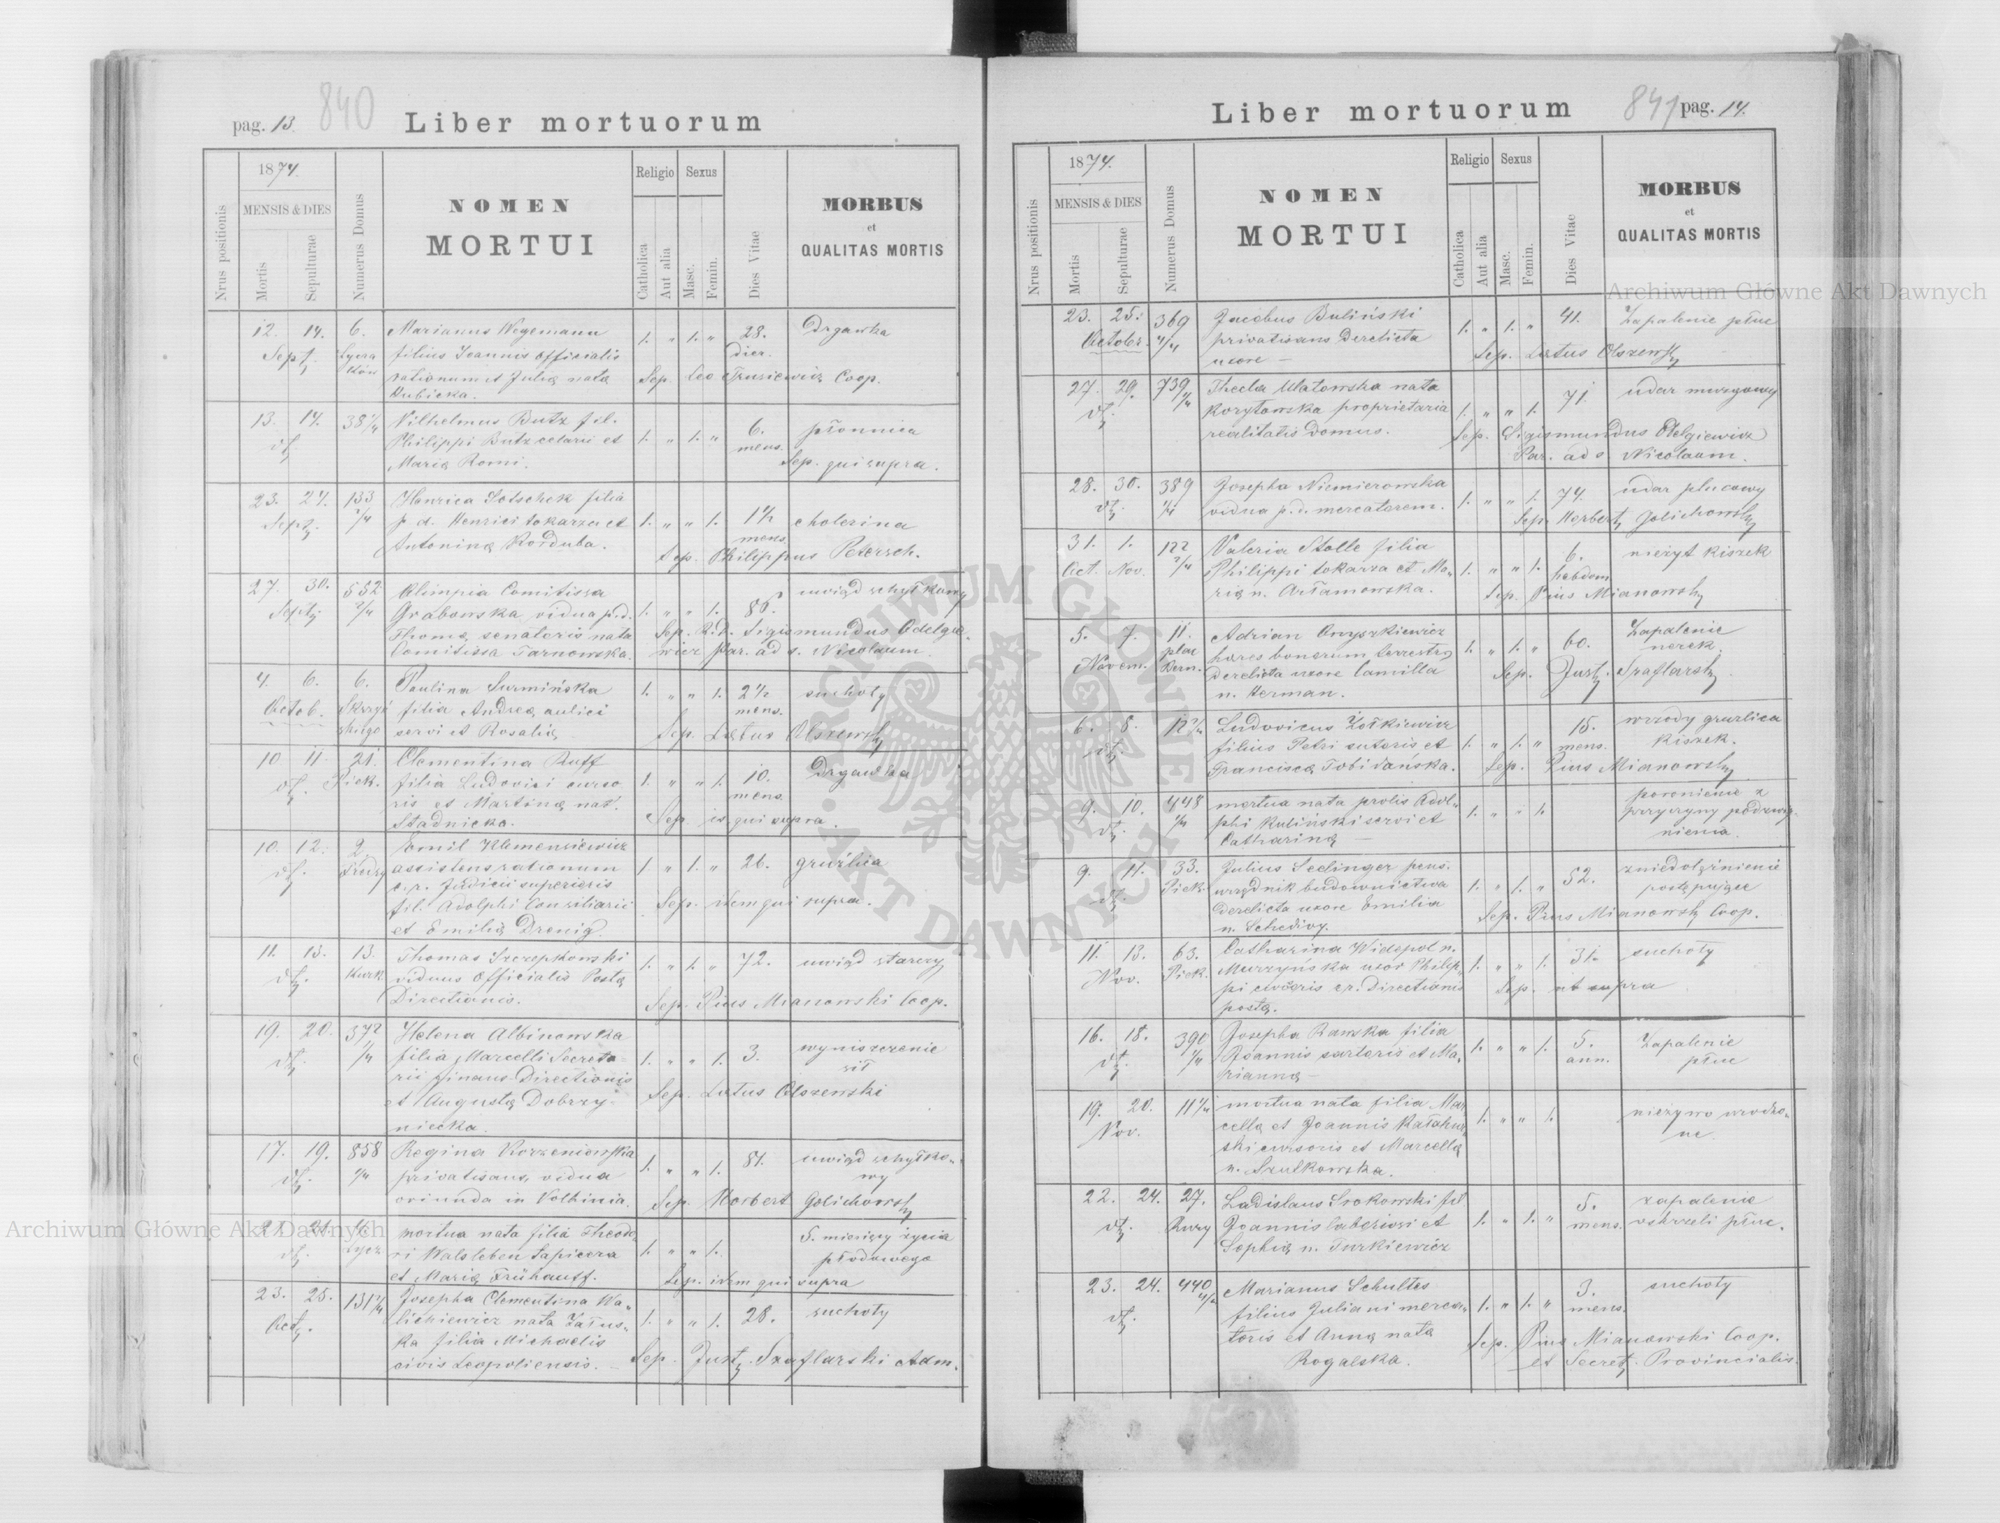 pag. 13. 840 Liber mortuorum
1874.
Nrus positionis
MENSIS & DIES
Mortis
Sepulturae
Numerus Domus
NOMEN
MORTUI
Religio
Catholica
Aut alia
Sexus
Masc.
Femin.
Dies Vitae
MORBUS
et
QUALITAS MORTIS
12. 14. 6. Marianus Wegemann 1. " 1. " 28. Drgawka
Sept. filius Joannis officialis dier.
rationum et Julia nata Sep. Leo Coop.
Kubicka.
13. 14. 38 1/4 Vilhelmus Butz fil. 1. " 1. " 6. płonnica
Philippi Butz et mens.
Maria Romi. Sep. qui supra.
23. 24. 133 Henrica Sotschek filia 1. " " 1. 1 1/2 cholerina
Sept. 2/4 p. d. Henrici tokarza et mens.
Antonina Korduba. Sep. Philippus Petersch.
27. 30. 552 Olimpia Comitissa 1. " " 1. 86. uwiąd schyłkowy
Sept. 2/4 Grabowska, vidua p. d. Sep. R. d. Sigismundus Odelgie-
Thoma senatoris nata wicz Par. ad s. Nicolaum.
Comitissa Tarnowska.
4. 6. 6. Paulina Surmińska 1. " " 1. 2 1/2 suchoty
Octob. filia Andrea aulici mens.
servi et Rosalia Sep. Latus Olszewski
10. 11. 21. Clementina Ruff 1. " " 1. 10. Drgawka
Piek. filia Ludovici curso mens.
ris et Martina nat. Sep. is qui supra.
Stadnicka.
10. 12. 2 Emil Klemensiewicz 1 " 1. " 26. gruźlica
assistens rationum
c. r. Judicii superioris
fil. Adolphi Consiliarii Sep. idem qui supra.
et Emilia Drenig
11. 13. 13. Thomas Szczepkowski 1. " 1. " 72. uwiąd starczy
Kurk. viduus officialis Posta
Directionis. Sep. Pius Mianowski Coop.
19. 20. 372 Helena Albinowska 1. " " 1. 3. wyniszczenie
1/4 filia Marcelli Secreta sił
rii finans Directionis Sep. Latus Olszewski
et Augusta Dobrzy-
niecka.
17. 19. 858 Regina Korzeniowska 1. " " 1. 81. uwiąd schyłko-
privatisans, vidua wy
oriunda in Volhinia Sep. Norbert Golichowski
21. mortua nata filia Theodo 1. " " 1. 5. miesięcy życia
Lycz. ri Walsleben tapicera płodowego
et Maria Frühauff. Sep. idem qui supra
23. 25. 131 Josepha Clementina Wa- 1. " " 1. 28. suchoty
Oct. lickiewicz nata Załus-
ka filia Michaelis
civis Leopoliensis. Sep. Just. Szaflarski Adm.
Liber mortuorum 841 pag. 14.
1874.
Nrus positionis
MENSIS & DIES
Mortis
Sepulturae
Numerus Domus
NOMEN
MORTUI
Religio
Catholica
Aut alia
Sexus
Masc.
Femin.
Dies Vitae
MORBUS
et
QUALITAS MORTIS
23. 25. 369 Jacobus Buliński 1. " 1. " 41. Zapalenie płuc
October 4/4 privatisans Derelicta
uxore — Sep. Latus Olszewski
27. 29. 739 Thecla Ulatowska nata 1. " " 1. 71. udar mózgowy
Korytowska proprietaria
realitatis domus. Sep. Sigismundus Odelgiewicz
Par. ad s Nicolaum.
28. 30. 389 Josepha Niemierowska 1. " " 1. 74. udar płucowy
vidua p. d. mercatorem. Sep. Norbert Golichowski
31. 1. 122 Valeria Stolle filia 1. " " 1. 6. nieżyt kiszek
Oct. Nov. 2/4 Philippi tokarza et Ma- hebdom.
ria n. Artamowska. Sep. Pius Mianowski
5. 7. 11. Adrian Onyszkiewicz 1. " 1. " 60. Zapalenie
Novem. plac haeres bonorum terrestr. nerek.
Bern. derelicta uxore Camilla Sep. Just. Szaflarski
n. Herman.
6. 8. 12 Ludovicus Żołkiewicz 1. " 1. " 15. wrzody gruźlica
filius Petri sutoris et mens. kiszek.
Francisca Tobidańska. Sep. Pius Mianowski
9. 10. 448 mortua nata prolis Adol- 1. " " 1. poronienie z
phi Kuliński servi et przyczyny podzwig-
Catharina — nienia.
9. 11. 33. Julius Seelinger pens. 1. " 1. " 52. zniedołężnienie
Piek. urzędnik budownictwa postępujące
Derelicta uxore Emilia Sep. Pius Mianowski Coop.
n. Schediwy.
11. 13. 63. Catharina Widepol n. 1. " " 1. 31. suchoty
Nov. Piek. Murzyńska uxor Philip-
pi c. r. Directionis Sep. ut supra
posta.
16. 18. 390 Josepha Ramska filia 1. " " 1. 5. Zapalenie
1/4 Joannis sartoris et Ma- ann. płuc
rianna —
19. 20. 11 mortua nata filia Mar 1. " " 1. nieżywo urodzo-
Nov. cella et Joannis ne.
ski cursoris et Marcella
n. Szulkowska.
22. 24. 27. Ladislaus Srokowski fil 1. " 1. " 5. zapalenie
Rury Joannis et mens. oskrzeli płuc.
Sophia n. Turkiewicz
23. 24. 440 Marianus Schultes 1. " 1. " 3. suchoty
filius Juliani merca- mens.
toris et Anna nata Sep. Pius Mianowski Coop.
Rogalska. et Secret. Provincialis.
Archiwum Główne Akt Dawnych
Archiwum Główne Akt Dawnych
ARCHIWUM GŁÓWNE AKT DAWNYCH